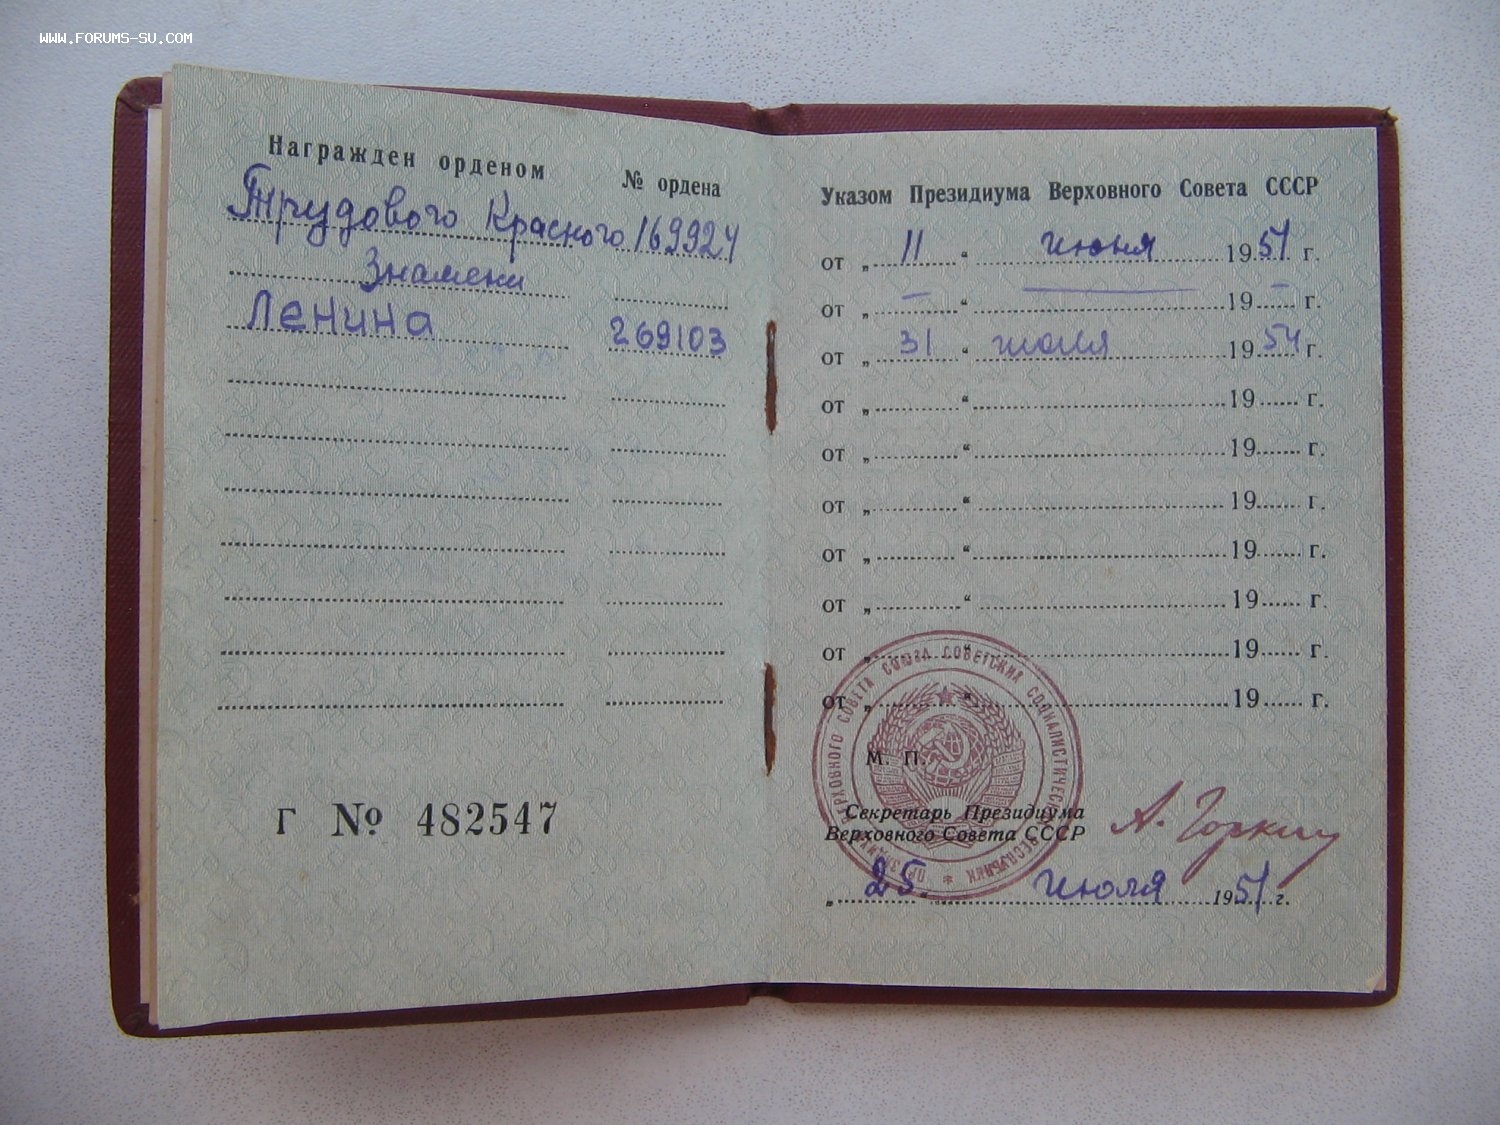 WWW.FORUMS-SU.COM
Награжден орденом № ордена
Трудового Красного 169924
Знамени
Ленина 269103
Г № 482547
Указом Президиума Верховного Совета СССР
от „ 11 “ июня 1951 г.
от „ — “ — 19 — г.
от „ 31 “ июля 1954 г.
от „ “ 19 г.
от „ “ 19 г.
от „ “ 19 г.
от „ “ 19 г.
от „ “ 19 г.
от „ “ 19 г.
от „ “ 19 г.
ПРЕЗИДИУМ ВЕРХОВНОГО СОВЕТА СОЮЗА СОВЕТСКИХ СОЦИАЛИСТИЧЕСКИХ РЕСПУБЛИК
М. П.
Секретарь Президиума
Верховного Совета СССР
А. Горкин
„ 25. июля 1951 г.